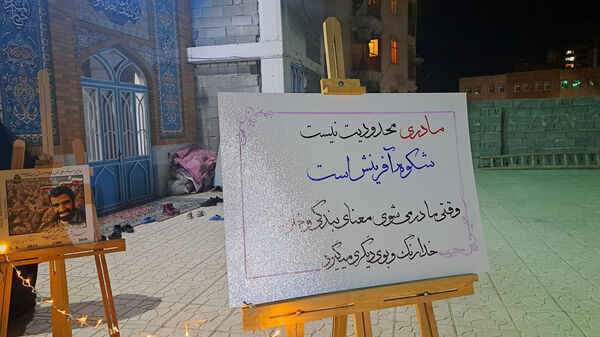 مادری محدودیت نیست
شکوه آفرینش است
وقتی مادر می شوی معنای بندگی و
خدا رنگ و بوی دیگری میگیرد